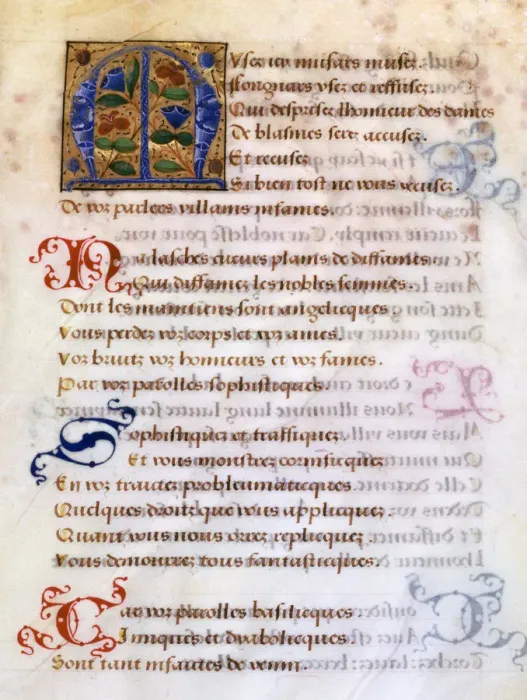 Musez icy musars musez.
vsez et reffusez.
Qui desprisez lhonneur des dames
De blasmes serez accusez.
Et recusez
Si bien tost ne vous
De voz parlers villains infames.
Ha lasches cueurs plains de diffames.
Qui diffamez les nobles femmes.
Dont les maintiens sont angelicques
Vous perdez voz corps et voz ames.
Voz bruitz voz honneurs et voz fames.
Par voz parolles sophisticques.
Sophistiquez et traffiquez
Et vous monstrez cornificquez
En voz traictez probleumaticques
Quelques droitz que vous applicquez
Quant vous nous orrez replicquez
Vous demourrez tous fantasticques.
Car voz parolles basilicques
Iniques et dyabolicques
Sont tant infaictes de venin.